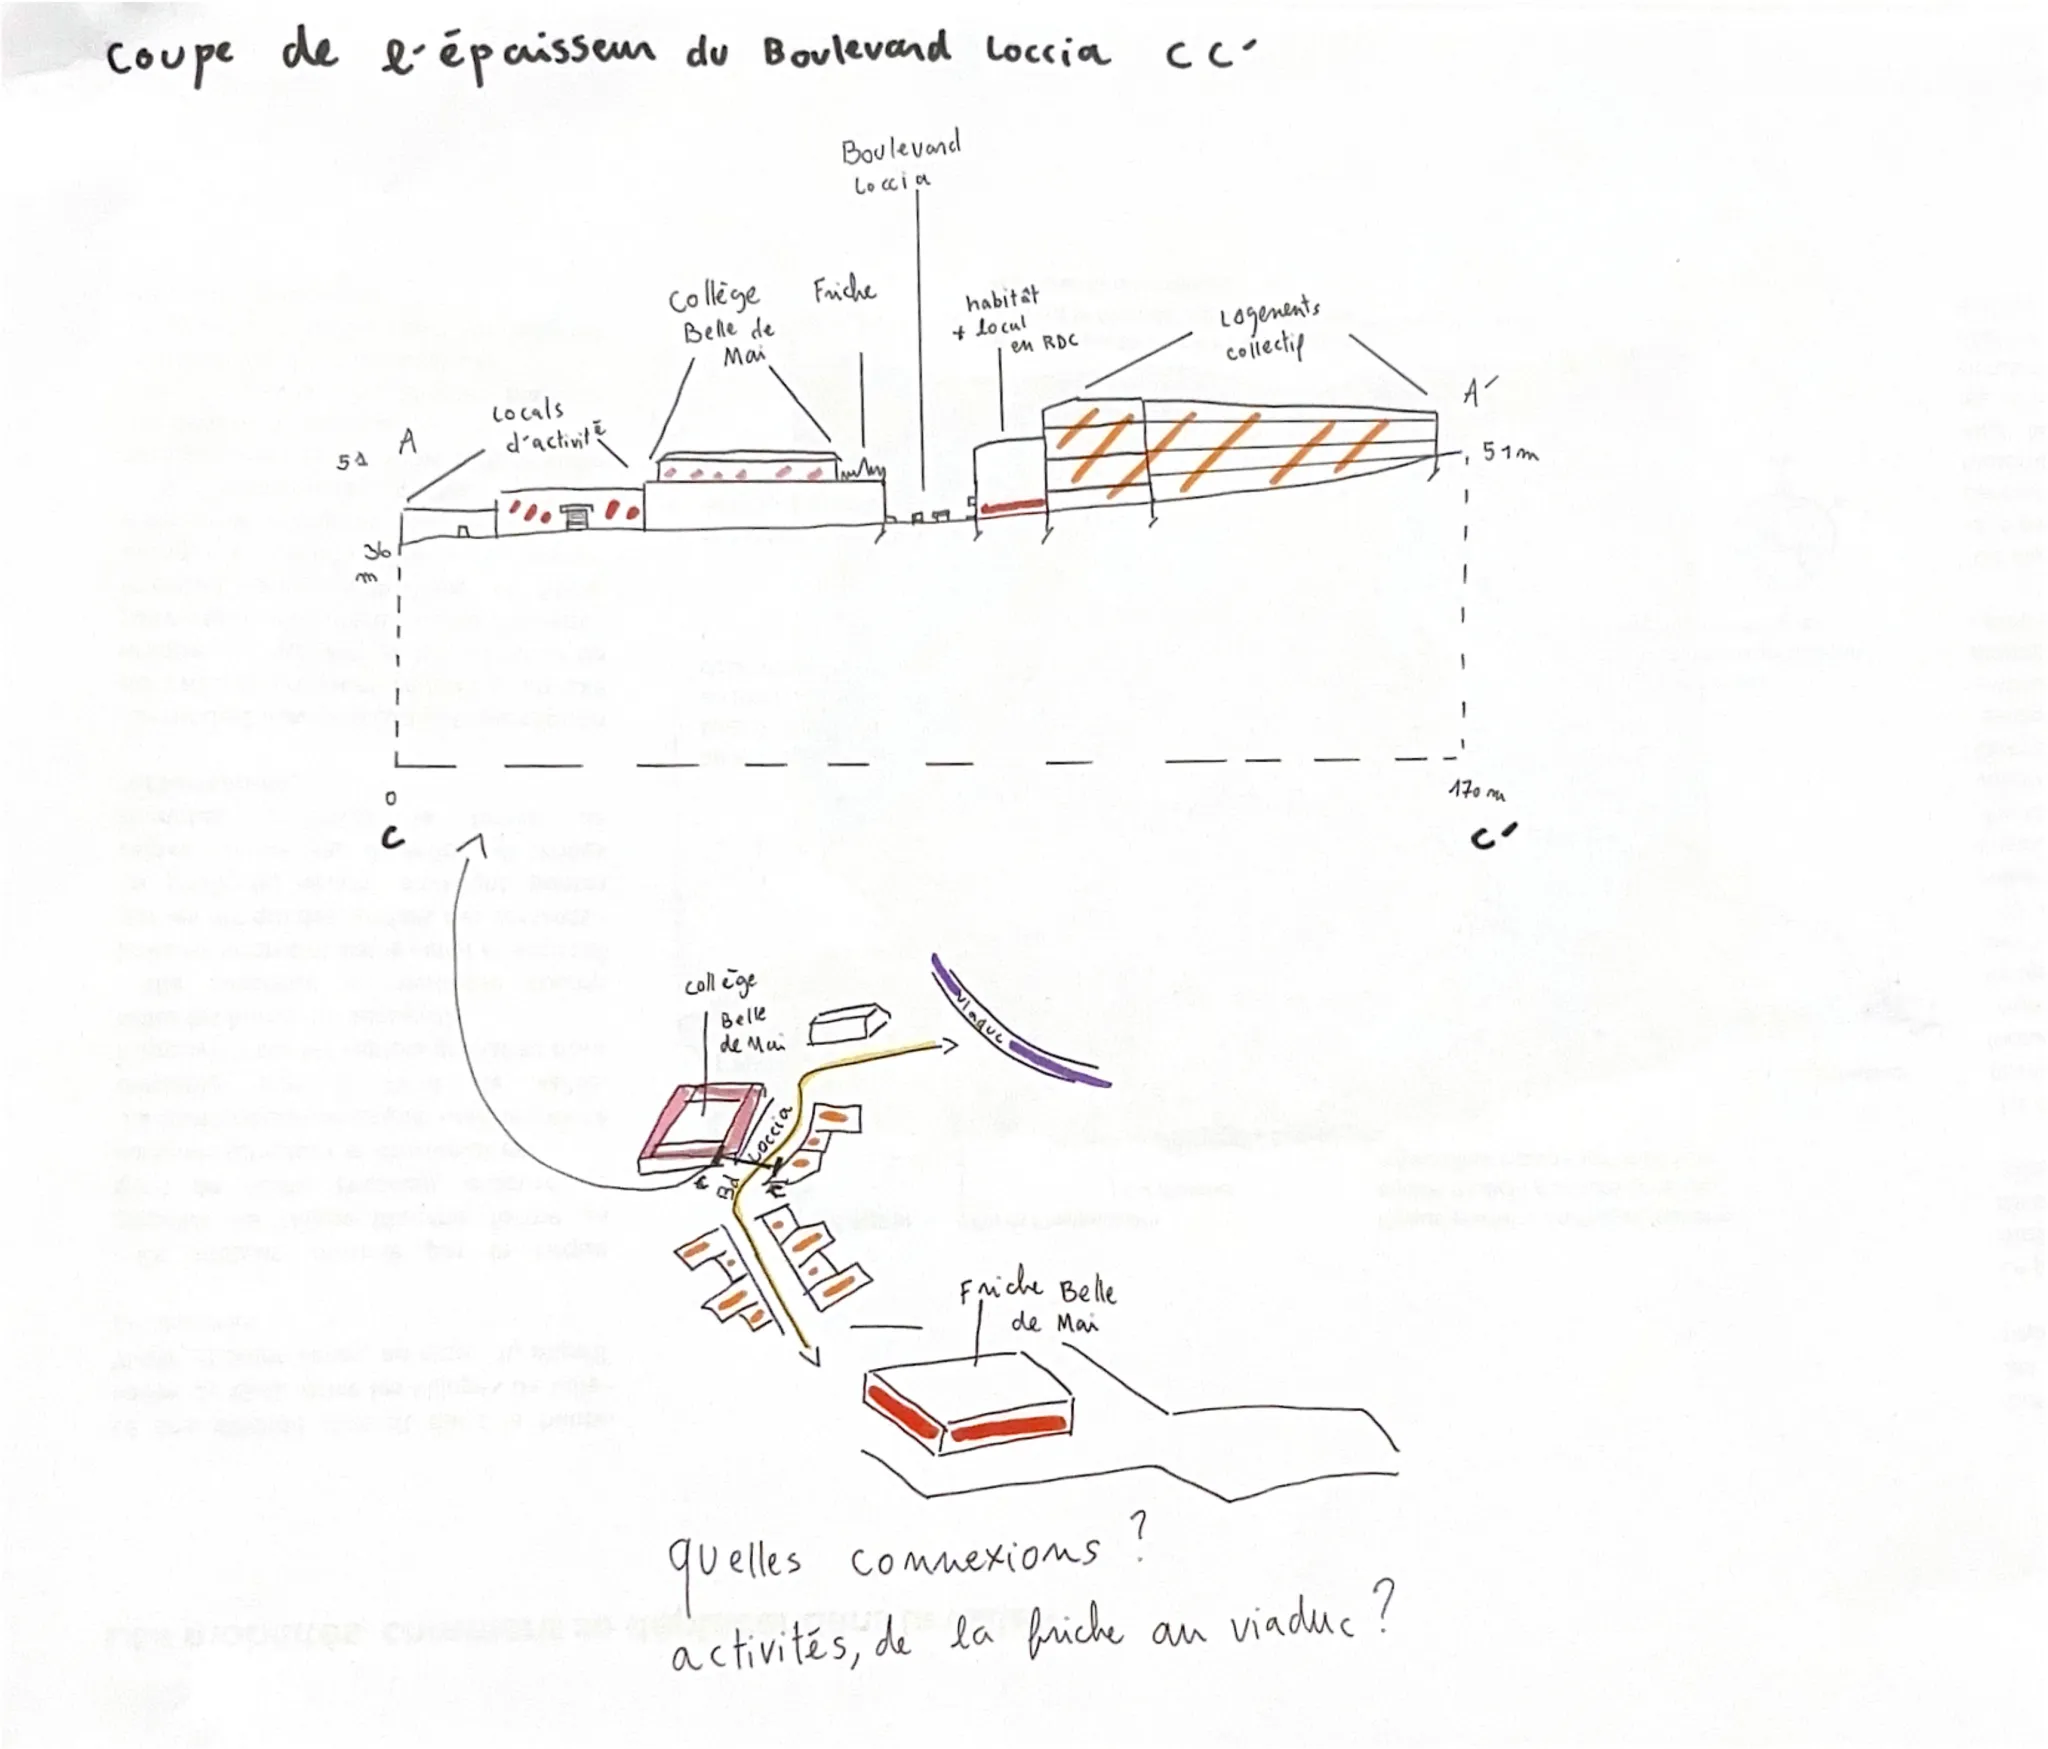 Coupe de l'épaisseur du Boulevard Loccia CC'
Boulevard
Loccia
Collège
Belle de
Mai
Friche
habitat
+ local
en RDC
Logements
collectif
Locals
d'activité
A
A'
51
51m
36
m
0
170 m
C
C'
collège
Belle
de Mai
Viaduc
Bd Loccia
Friche Belle
de Mai
quelles connexions ?
activités, de la friche au viaduc ?